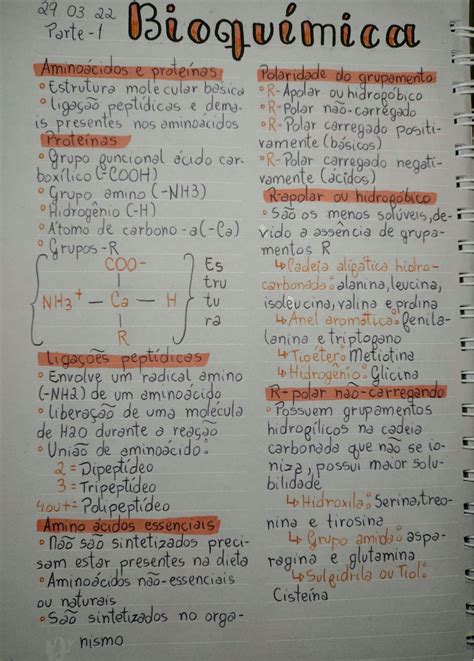 29 03 22
Parte-1
Bioquímica
Aminoácidos e proteínas
°Estrutura molecular básica
°ligação peptídicas e dema-
is presentes nos aminoácidos
Proteínas
°Grupo funcional ácido car-
boxílico (-COOH)
°Grupo amino (-NH3)
°Hidrogênio (-H)
°Átomo de carbono -a(-Ca)
°Grupos -R
COO-
NH3+ — Ca — H
R
Es
tru
tu
ra
Ligações peptídicas
°Envolve um radical amino
(-NH2) de um aminoácido
°liberação de uma molécula
de H2O durante a reação
°União de aminoácido:
2 = Dipeptídeo
3 = Tripeptídeo
4ou+= Polipeptídeo
Amino ácidos essenciais
°Não são sintetizados preci-
sam estar presentes na dieta
°Aminoácidos não-essenciais
ou naturais
°São sintetizados no orga-
nismo
Polaridade do grupamento
°R-Apolar ou hidrofóbico
°R-Polar não-carregado
°R-Polar carregado positi-
vamente (básicos)
°R-Polar carregado negati-
vamente (ácidos)
R-apolar ou hidrofóbico
°São os menos solúveis,de-
vido a assência de grupa-
mentos R
↳Cadeia alifática hidro-
carbonada: alanina, leucina,
isoleucina, valina e prolina
↳Anel aromática: fenila-
lanina e triptofano
↳Tioéter: Metiotina
↳Hidrogênio: Glicina
R-polar não-carregando
°Possuem grupamentos
hidrofílicos na cadeia
carbonada que não se io-
niza, possui maior solu-
bilidade
↳Hidroxila: Serina, treo-
nina e tirosina
↳Grupo amida: aspa-
ragina e glutamina
↳Sulfidrila ou Tiol:
Cisteína